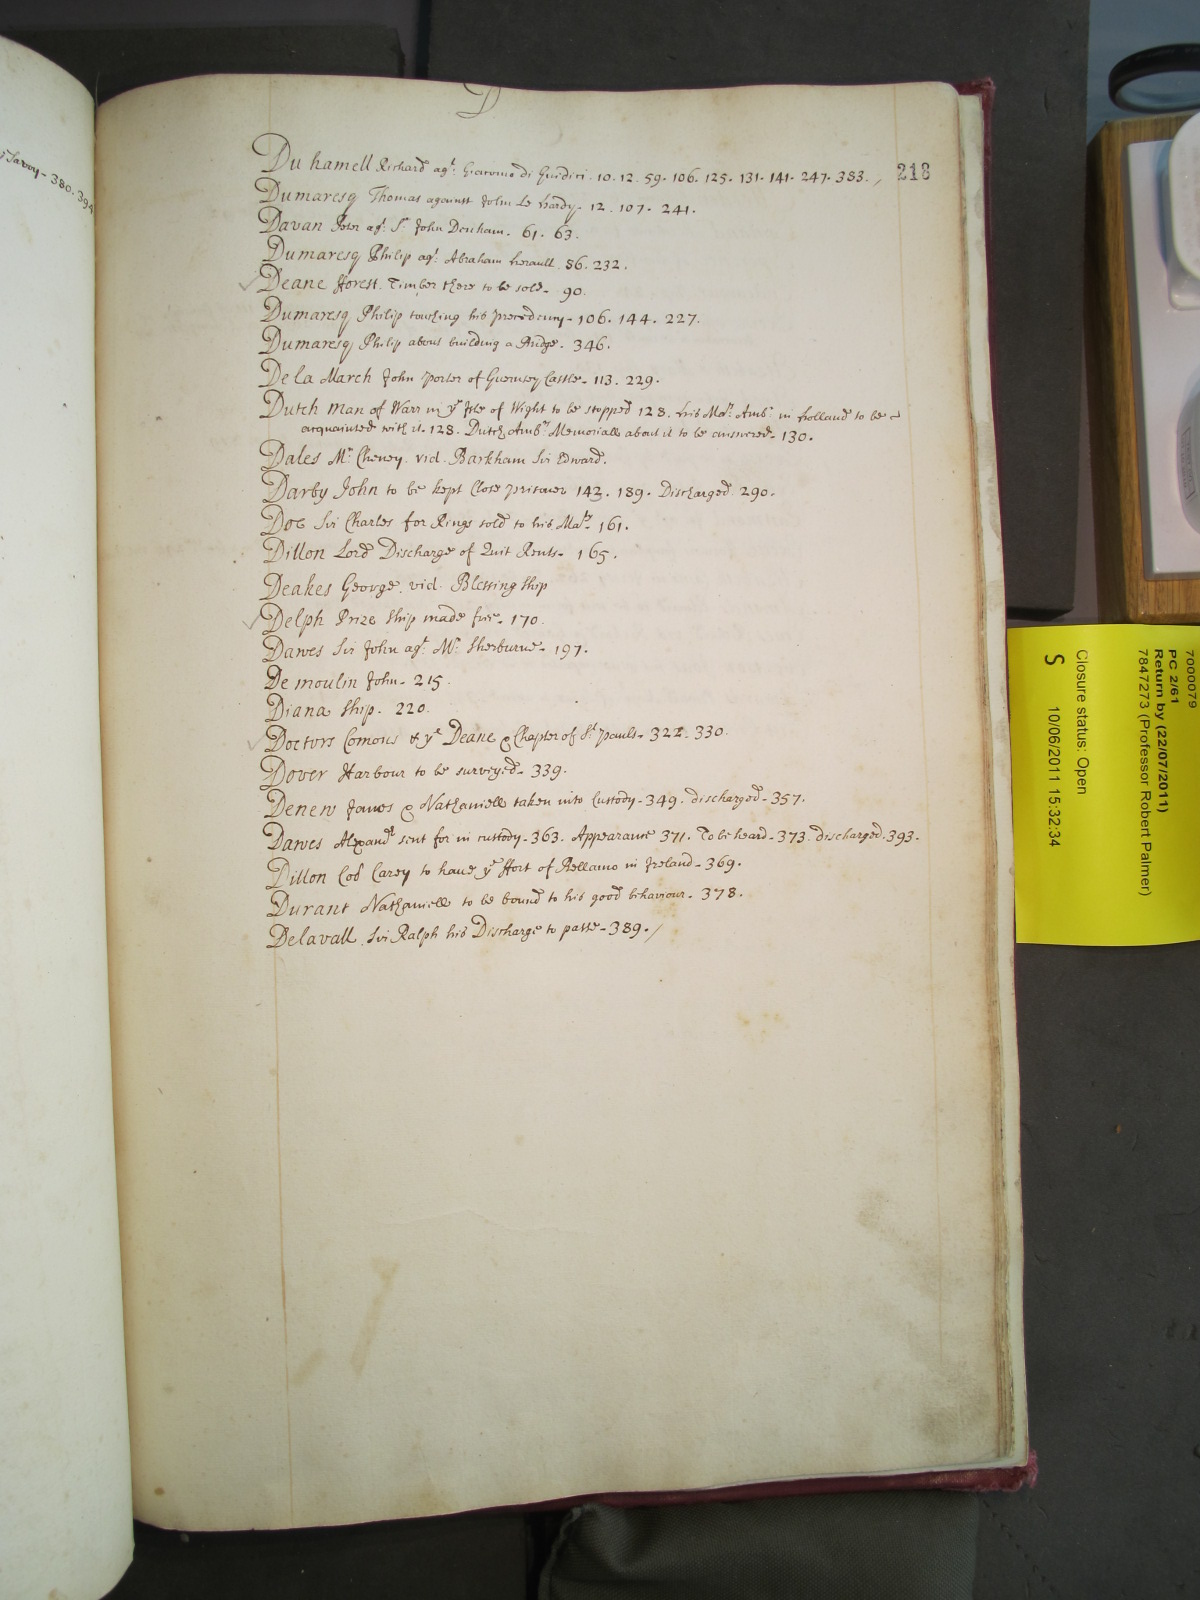 D
218
Du hamell Richard agt. Giacomo di Quidici. 10. 12. 59. 106. 125. 131. 141. 247. 383.
Dumaresq Thomas against John Le Hardy. 12. 107. 241.
Davan Peter agt. Sr. John Denham. 61. 63.
Dumaresq Philip agt. Abraham Herault. 86. 232.
Deane fforest. Timber there to be sold. 90.
Dumaresq Philip touching his precedency. 106. 144. 227.
Dumaresq Philip about building a Bridge. 346.
De la March John Porter of Guernsey Castle. 113. 229.
Dutch Man of Warr in ye Isle of Wight to be stopped 128. his Maty. Ambr. in Holland to be
acquainted with it. 128. Dutch Ambrs. Memorialls about it to be answered. 130.
Dales Mr. Cheney. vid. Barkham Sir Edward.
Darby John to be kept Close prisoner 142. 189. Discharged. 290.
Doe Sir Charles for Rings sold to his Maty. 161.
Dillon Lord Discharge of Quit Rents. 165.
Deakes George. vid. Blessing ship
Delph Prize ship made free. 170.
Dawes Sir John agt. Mr. Sherburne. 197.
De moulin John. 215.
Diana ship. 220.
Doctors Comons & ye Deane & Chapter of St. Pauls. 322. 330.
Dover Harbour to be surveyed. 339.
Denew James & Nathaniell taken into Custody. 349. discharged. 357.
Dawes Alexandr. sent for in custody. 363. Appearance 371. To be heard. 373. discharged. 393.
Dillon Coll Carey to haue ye ffort of Bellamo in Ireland. 369.
Durant Nathaniell to be bound to his good behaviour. 378.
Delavall Sir Ralph his Discharge to passe. 389.
Savoy. 380. 394
7000079
PC 2/61
Return by (22/07/2011)
7847273 (Professor Robert Palmer)
Closure status: Open
S 10/06/2011 15:32:34